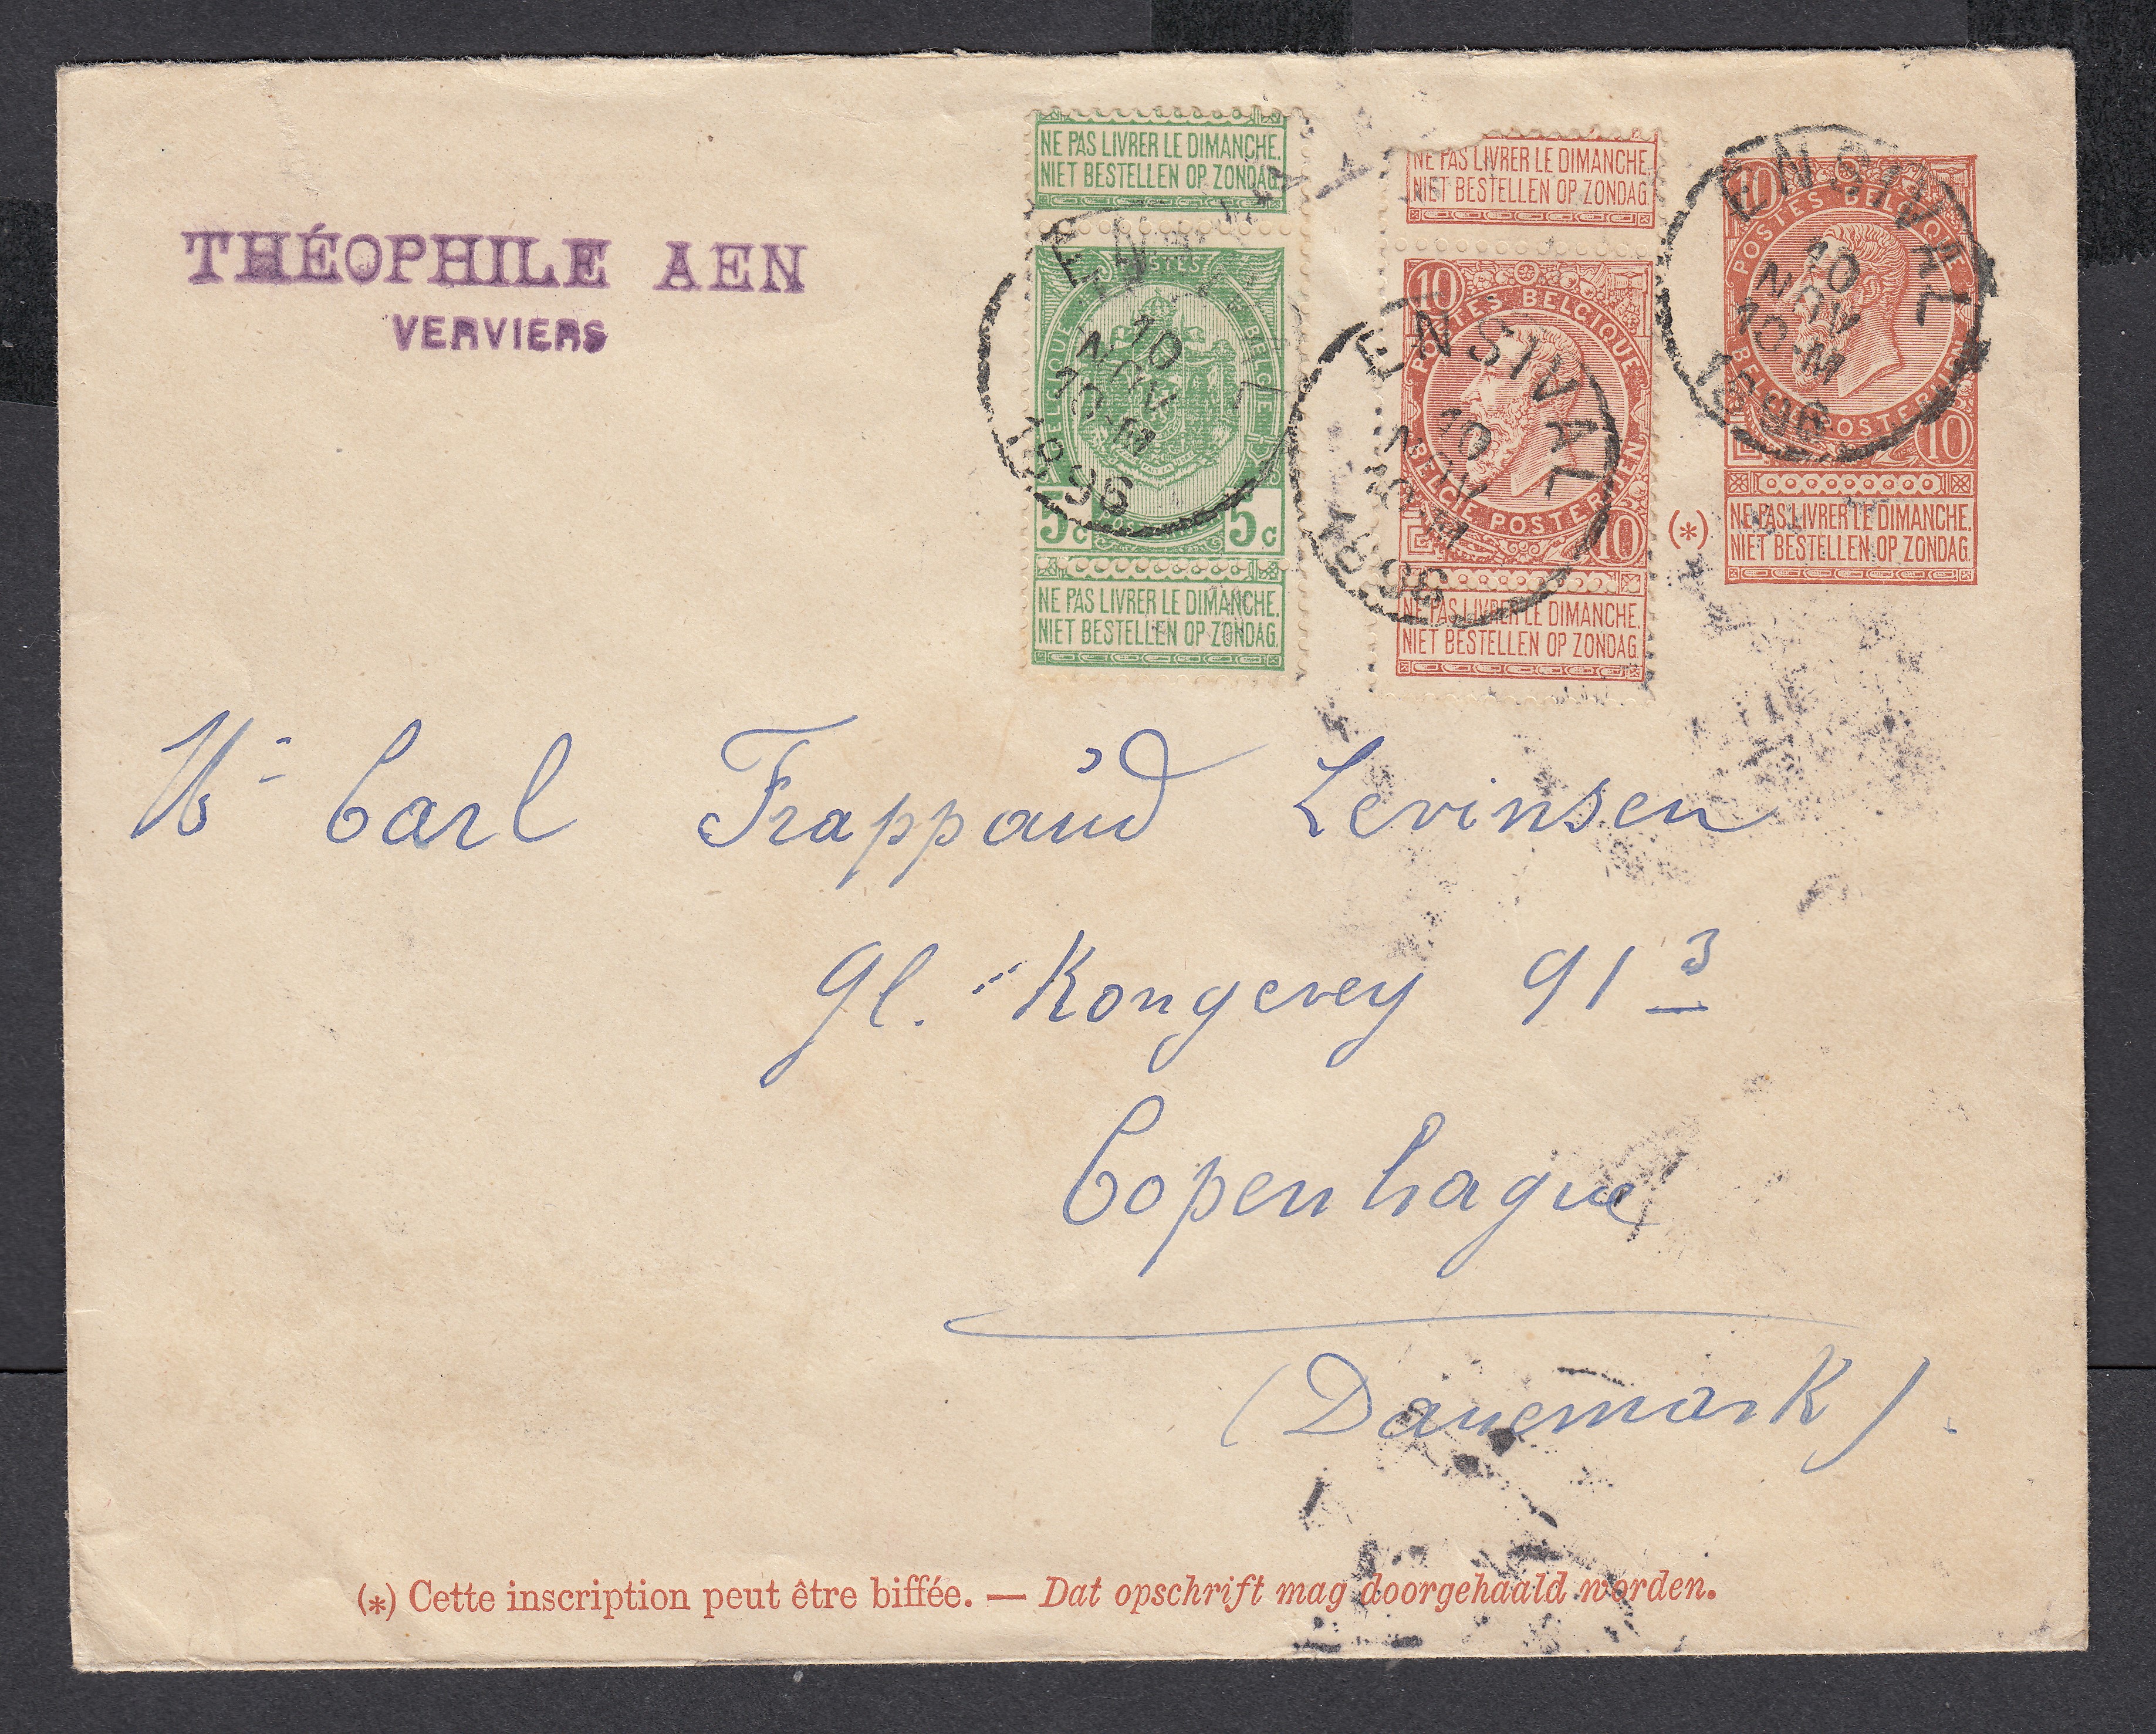 THÉOPHILE AEN
VERVIERS
NE PAS LIVRER LE DIMANCHE.
NIET BESTELLEN OP ZONDAG.
POSTES
BELGIQUE
BELGIE
5c 5c
NE PAS LIVRER LE DIMANCHE.
NIET BESTELLEN OP ZONDAG.
10 NOV 10-M
1896
NE PAS LIVRER LE DIMANCHE.
NIET BESTELLEN OP ZONDAG.
10
POSTES BELGIQUE
BELGIE POSTERIJEN
10
NE PAS LIVRER LE DIMANCHE.
NIET BESTELLEN OP ZONDAG.
ENSIVAL
10 NOV 10-M
1896
10
POSTES BELGIQUE
BELGIE POSTERIJEN
10
(*) NE PAS LIVRER LE DIMANCHE.
NIET BESTELLEN OP ZONDAG.
ENSIVAL
10 NOV 10-M
1896
Carl Levinsen
gl. Kongevey 91 3
Copenhague
(Danemark).
(*) Cette inscription peut être biffée. — Dat opschrift mag doorgehaald worden.